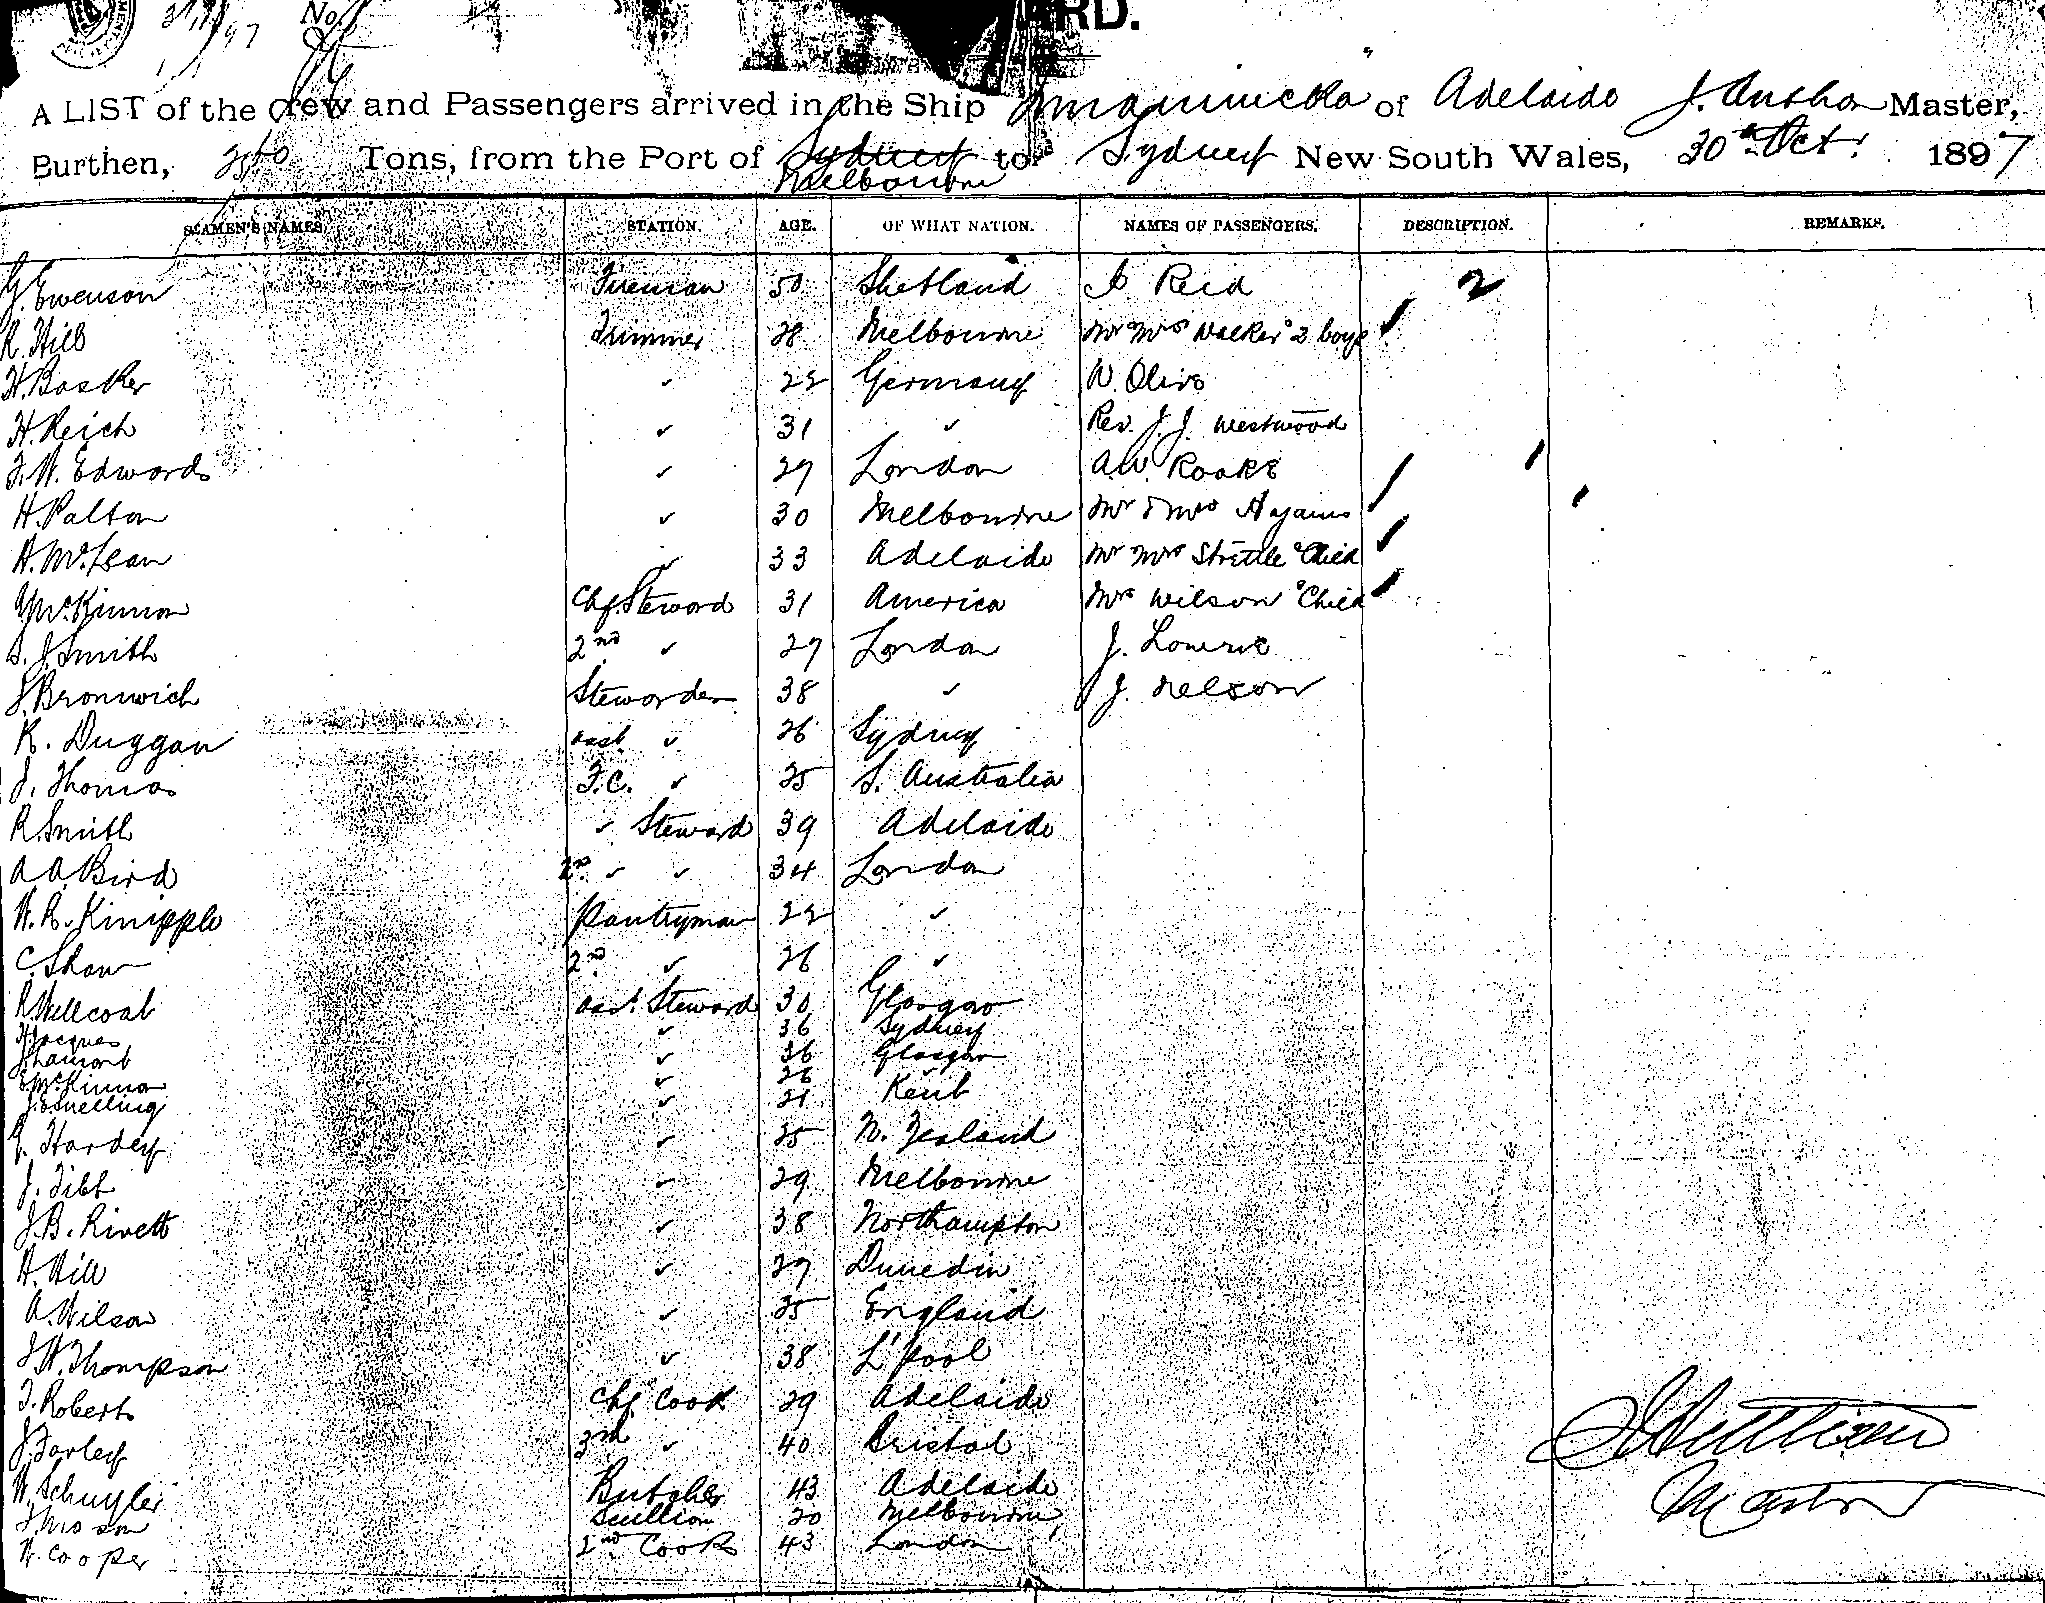 No.
RD.
A LIST of the Crew and Passengers arrived in the Ship of Adelaide Master,
Burthen, Tons, from the Port of Sydney Melbourne to Sydney New South Wales, 30th Oct. 1897
SEAMEN'S NAMES. STATION. AGE. OF WHAT NATION. NAMES OF PASSENGERS. DESCRIPTION. REMARKS.
J. Ewenson Fireman 50 Shetland Reid 2
R. Hill Trimmer 28 Melbourne Mr Mrs Walker & 2 boys
H. Basker ✓ 22 Germany W. Olive
H. Reich ✓ 31 ✓ Rev. J. J. Westwood
F. W. Edwards ✓ 29 London A.W. Rooke
H. Palton ✓ 30 Melbourne Mr & Mrs
A. McLean ✓ 33 Adelaide Mr Mrs Strettle & Child
McKinnon Chf. Steward 31 America Mrs Wilson & Child
S. J. Smith 2nd ✓ 29 London J. Lowrie
J. Bronwich Stewardess 38 ✓ J. Nelson
K. Duggan asst. ✓ 26 Sydney
J. Thomas F.C. ✓ 25 S. Australia
R Smith ✓ Steward 39 Adelaide
A A. Bird 2nd ✓ ✓ 34 London
W. R. Knipple Pantryman 22 ✓
C. Shaw 2nd ✓ 26 ✓
R Wellcoat asst. Steward 30 Glasgow
H Jacques ✓ 36 Sydney
J Lamont ✓ 36 Glasgow
E McKinnon ✓ 26 "
J. E Snelling ✓ 21 Kent
G. Hardey ✓ 25 N. Zealand
J. Tibb ✓ 29 Melbourne
J. B. Rivett ✓ 38 Northampton
H. Hill ✓ 27 Dunedin
A. Wilson ✓ 25 England
J W. Thompson ✓ 38 L'pool
F. Roberts Chf. Cook 29 Adelaide
J Farley 3rd ✓ 40 Bristol
W. Schuyler Butcher 43 Adelaide
Scullion 20 Melbourne
W. Cooper 2nd Cook 43 London
Master